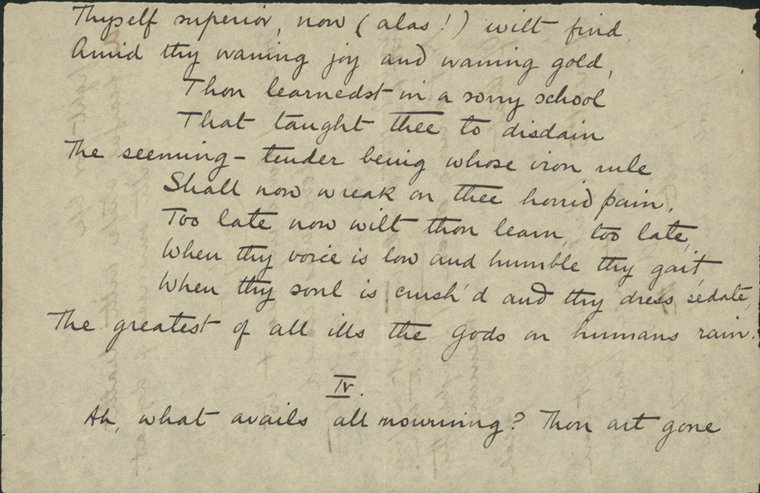 Thyself superior, now (alas!) wilt find,
Amid thy waning joy and waning gold,
Thou learnedst in a sorry school
That taught thee to disdain
The seeming-tender being whose iron rule
Shall now wreak on thee horrid pain.
Too late now wilt thou learn, too late,
When thy voice is low and humble thy gait,
When thy soul is crush'd and thy dress sedate,
The greatest of all ills the gods on humans rain.
IV.
Ah, what avails all mourning? Thou art gone